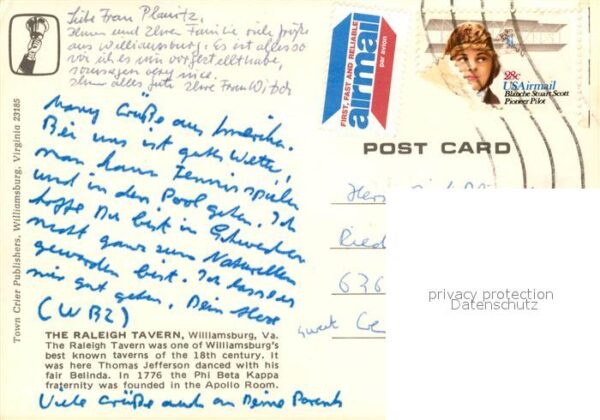 Liebe Frau Planitz,
Ihnen und Ihrer Familie viele Grüße
aus Williamsburg. Es ist alles so
wie ich es mir vorgestellt habe,
sozusagen very nice.
Ihnen alles gute Ihre Frau
Many Grüße aus Amerika.
Bei uns ist gutes Wetter,
man kann Tennis spielen
und in den Pool gehen. Ich
hoffe Du bist in Schweden
nicht ganz zum
geworden bist. Ich lass es
mir gut gehen. Dein
(WBZ)
Town Crier Publishers, Williamsburg, Virginia 23185
FIRST, FAST AND RELIABLE
airmail
par avion
28c
USAirmail
Blanche Stuart Scott
Pioneer Pilot
POST CARD
Ried
636
privacy protection
Datenschutz
THE RALEIGH TAVERN, Williamsburg, Va.
The Raleigh Tavern was one of Williamsburg's
best known taverns of the 18th century. It
was here Thomas Jefferson danced with his
fair Belinda. In 1776 the Phi Beta Kappa
fraternity was founded in the Apollo Room.
Viele Grüße auch an Deine Parents